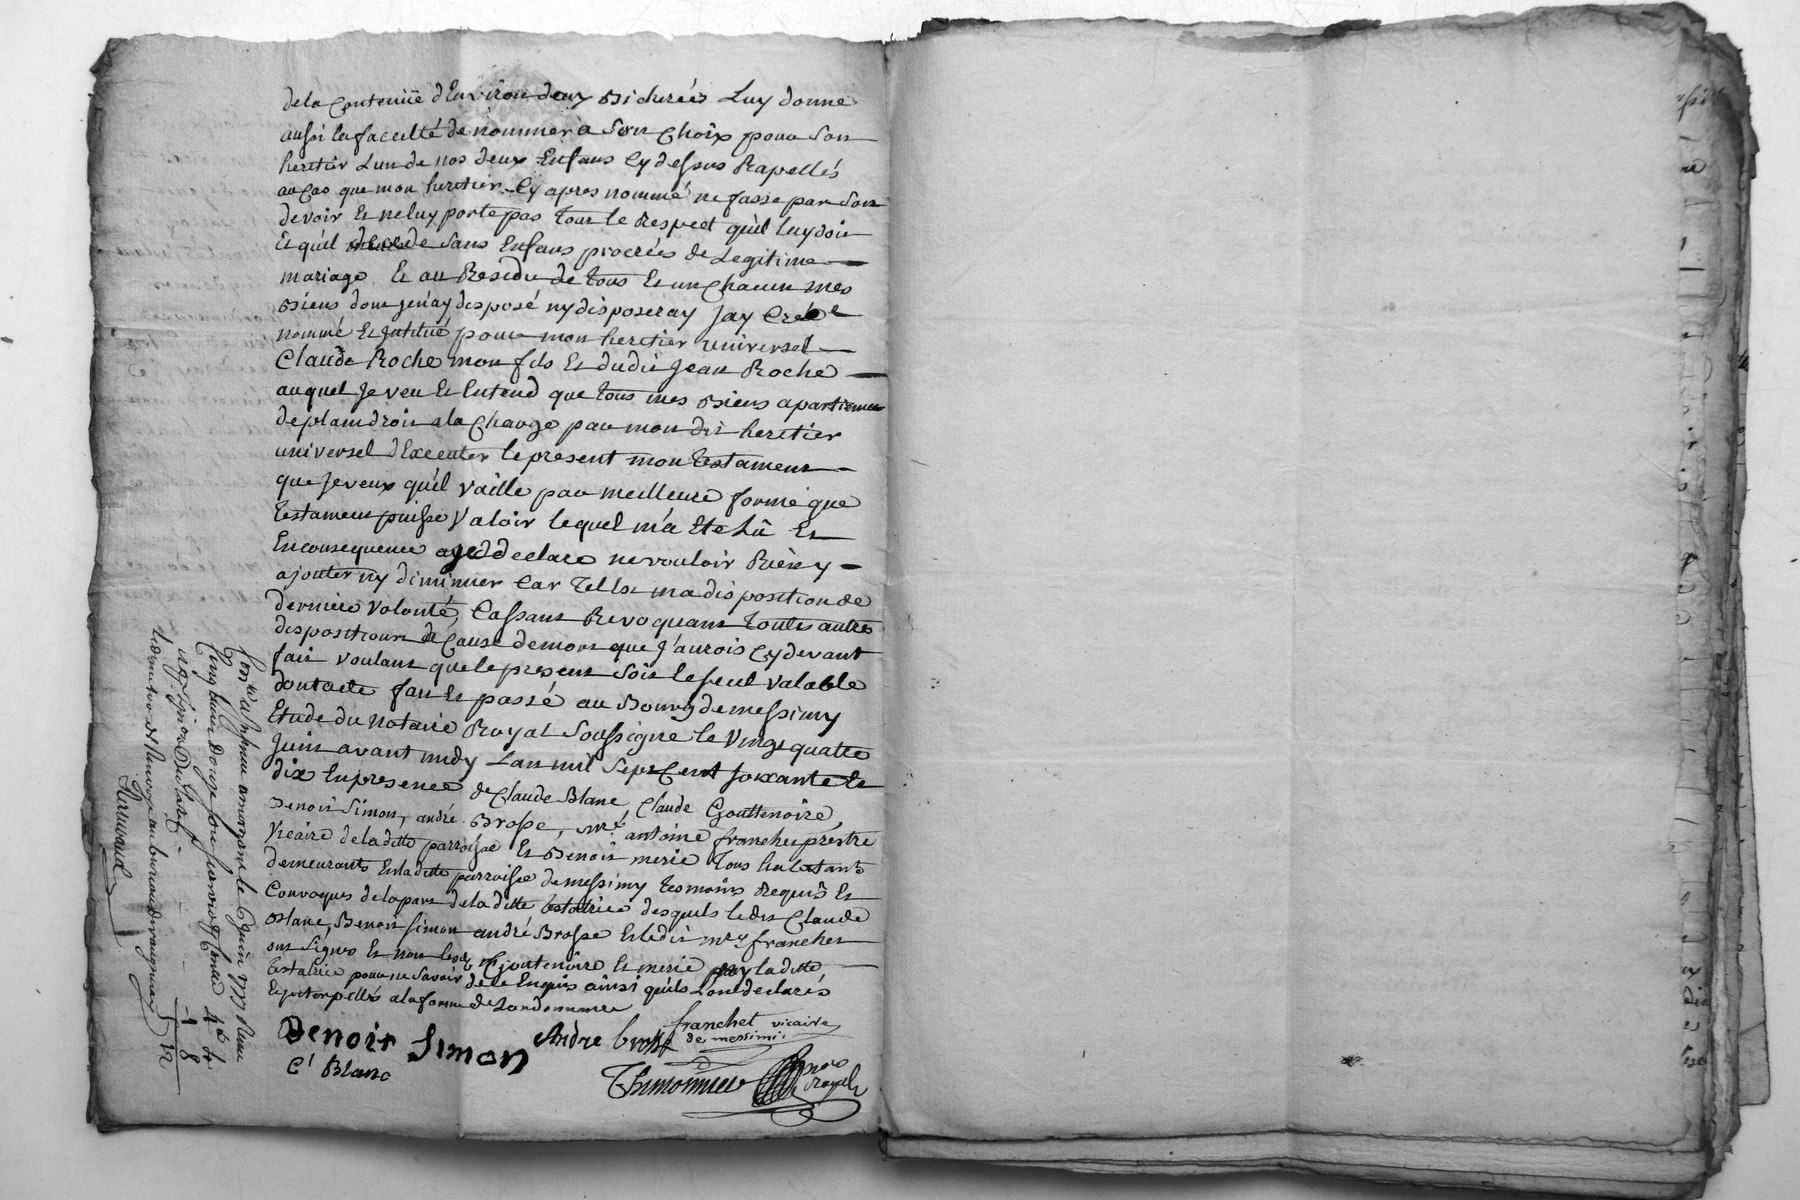 dela Contenüe d'Environ deux Bicherées Luy donne
aussi la faculté de nommer a son Choix pour son
heritier Lun de nos deux Enfans Cy dessus Rapellés
au Cas que mon heritier Cy apres nommé ne fasse pas son
devoir Et ne luy porte pas tout le Respect qu'il luy doit
Et qu'il decede sans Enfans procréés de Legitime
mariage Et au Residu de tous Et un Chacun mes
Biens dont je n'ay disposé ny disposeray jay Créé
nommé Et Jnstitué pour mon heritier universel
Claude Roche mon fils Et dudit Jean Roche
auquel Je veu Et Entend que tous mes Biens apartienne
de plain droit ala Charge par mon dit heritier
universel d'Executer le present mon testament
que Je veux qu'il Vaille par meilleure forme que
testament puisse Valoir lequel m'a Ete Lû Et
En consequence declare ne vouloir Rien y
ajouter ny diminuer Car telle ma disposition de
derniere Volonté, Cassant Revoquant toutes autres
dispositions de Cause de mort que J'aurois Cy devant
fait voulant que le present soit le seul valable
dont acte fait Et passé au Bourg de messimy
Etude du notaire Royal soussigné le vingt quatre
Juin avant midy Lan mil sept Cent soixante Et
dix En presence de Claude Blanc, Claude Gouttenoire,
Benoit Simon, andré Brosse, mre. antoine franchet prestre
Vicaire de la ditte parroisse Et Benoit merie tous habitants
demeurants En la ditte parroisse de messimy temoins Requis Et
Convoqués de la part de la ditte testatrice desquels ledit Claude
Blanc, Benoit Simon andré Brosse Et ledit mre franchet
ont signés Et non lesd. Goutenoire Et merie ny la ditte
testatrice pour ne savoir de ce Enquis ainsi qu'ils l'ont declarés
Et Jnterpellés a la forme de Lordonnance
Benoit Simon Andre brosse franchet vicaire
de messimi
C. Blanc
Thimonnier nore
Royal